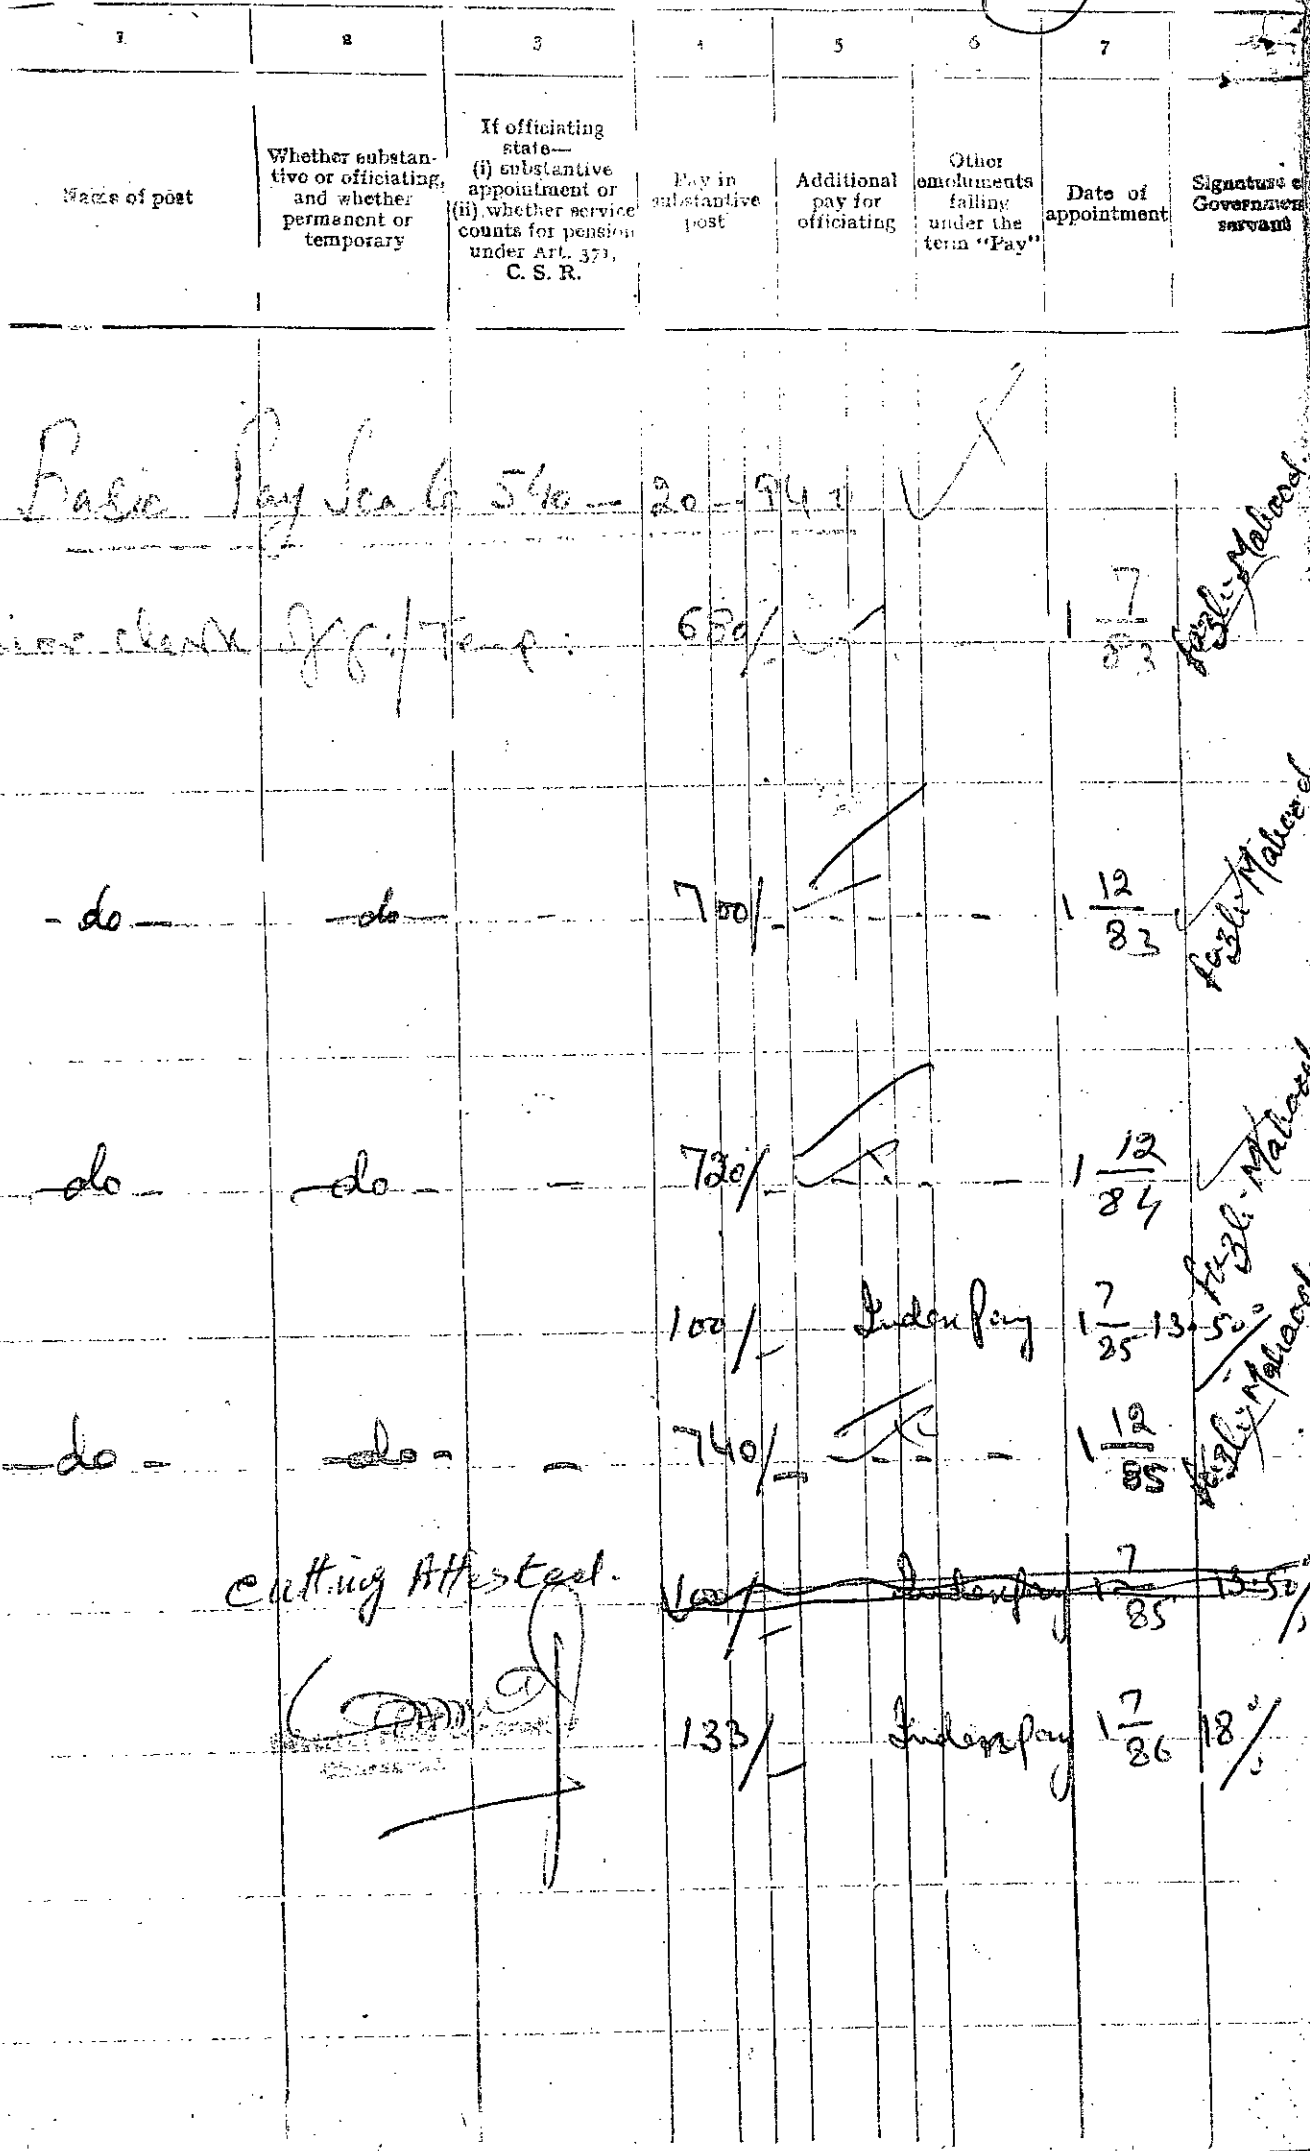 1 2 3 4 5 6 7
Name of post
Whether substan-
tive or officiating,
and whether
permanent or
temporary
If officiating
state—
(i) substantive
appointment or
(ii) whether service
counts for pension
under Art. 371,
C. S. R.
Pay in
substantive
post
Additional
pay for
officiating
Other
emoluments
falling
under the
term “Pay”
Date of
appointment
Signature
Government
servant
Basic Pay Scale 540 - 20 - 940
clerk Offi:/Temp: 680/- 1 7/83 Fazli-Mabood
- do - - do - - 700/- - 1 12/83 Fazli-Mabood
- do - - do - - 720/- - 1 12/84 Fazli-Mabood
100/- Inden Pay 1 7/85 13.50%
- do - - do - - 740/- - 1 12/85 Fazli-Mabood
Cutting Attested. 100/- Inden pay 1 7/85 13.50%
133/- Inden pay 1 7/86 18%